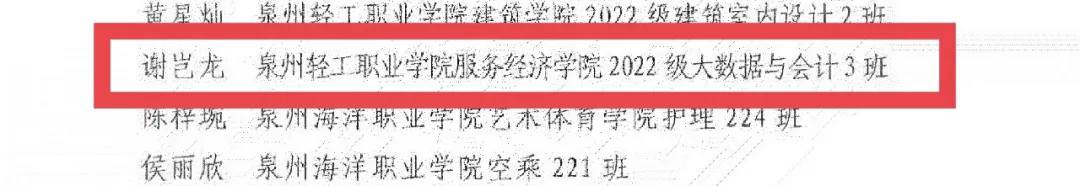 黄星灿 泉州轻工职业学院建筑学院 2022 级建筑室内设计 2 班
谢岂龙 泉州轻工职业学院服务经济学院 2022 级大数据与会计 3 班
陈梓琬 泉州海洋职业学院艺术体育学院护理 224 班
侯丽欣 泉州海洋职业学院空乘 221 班